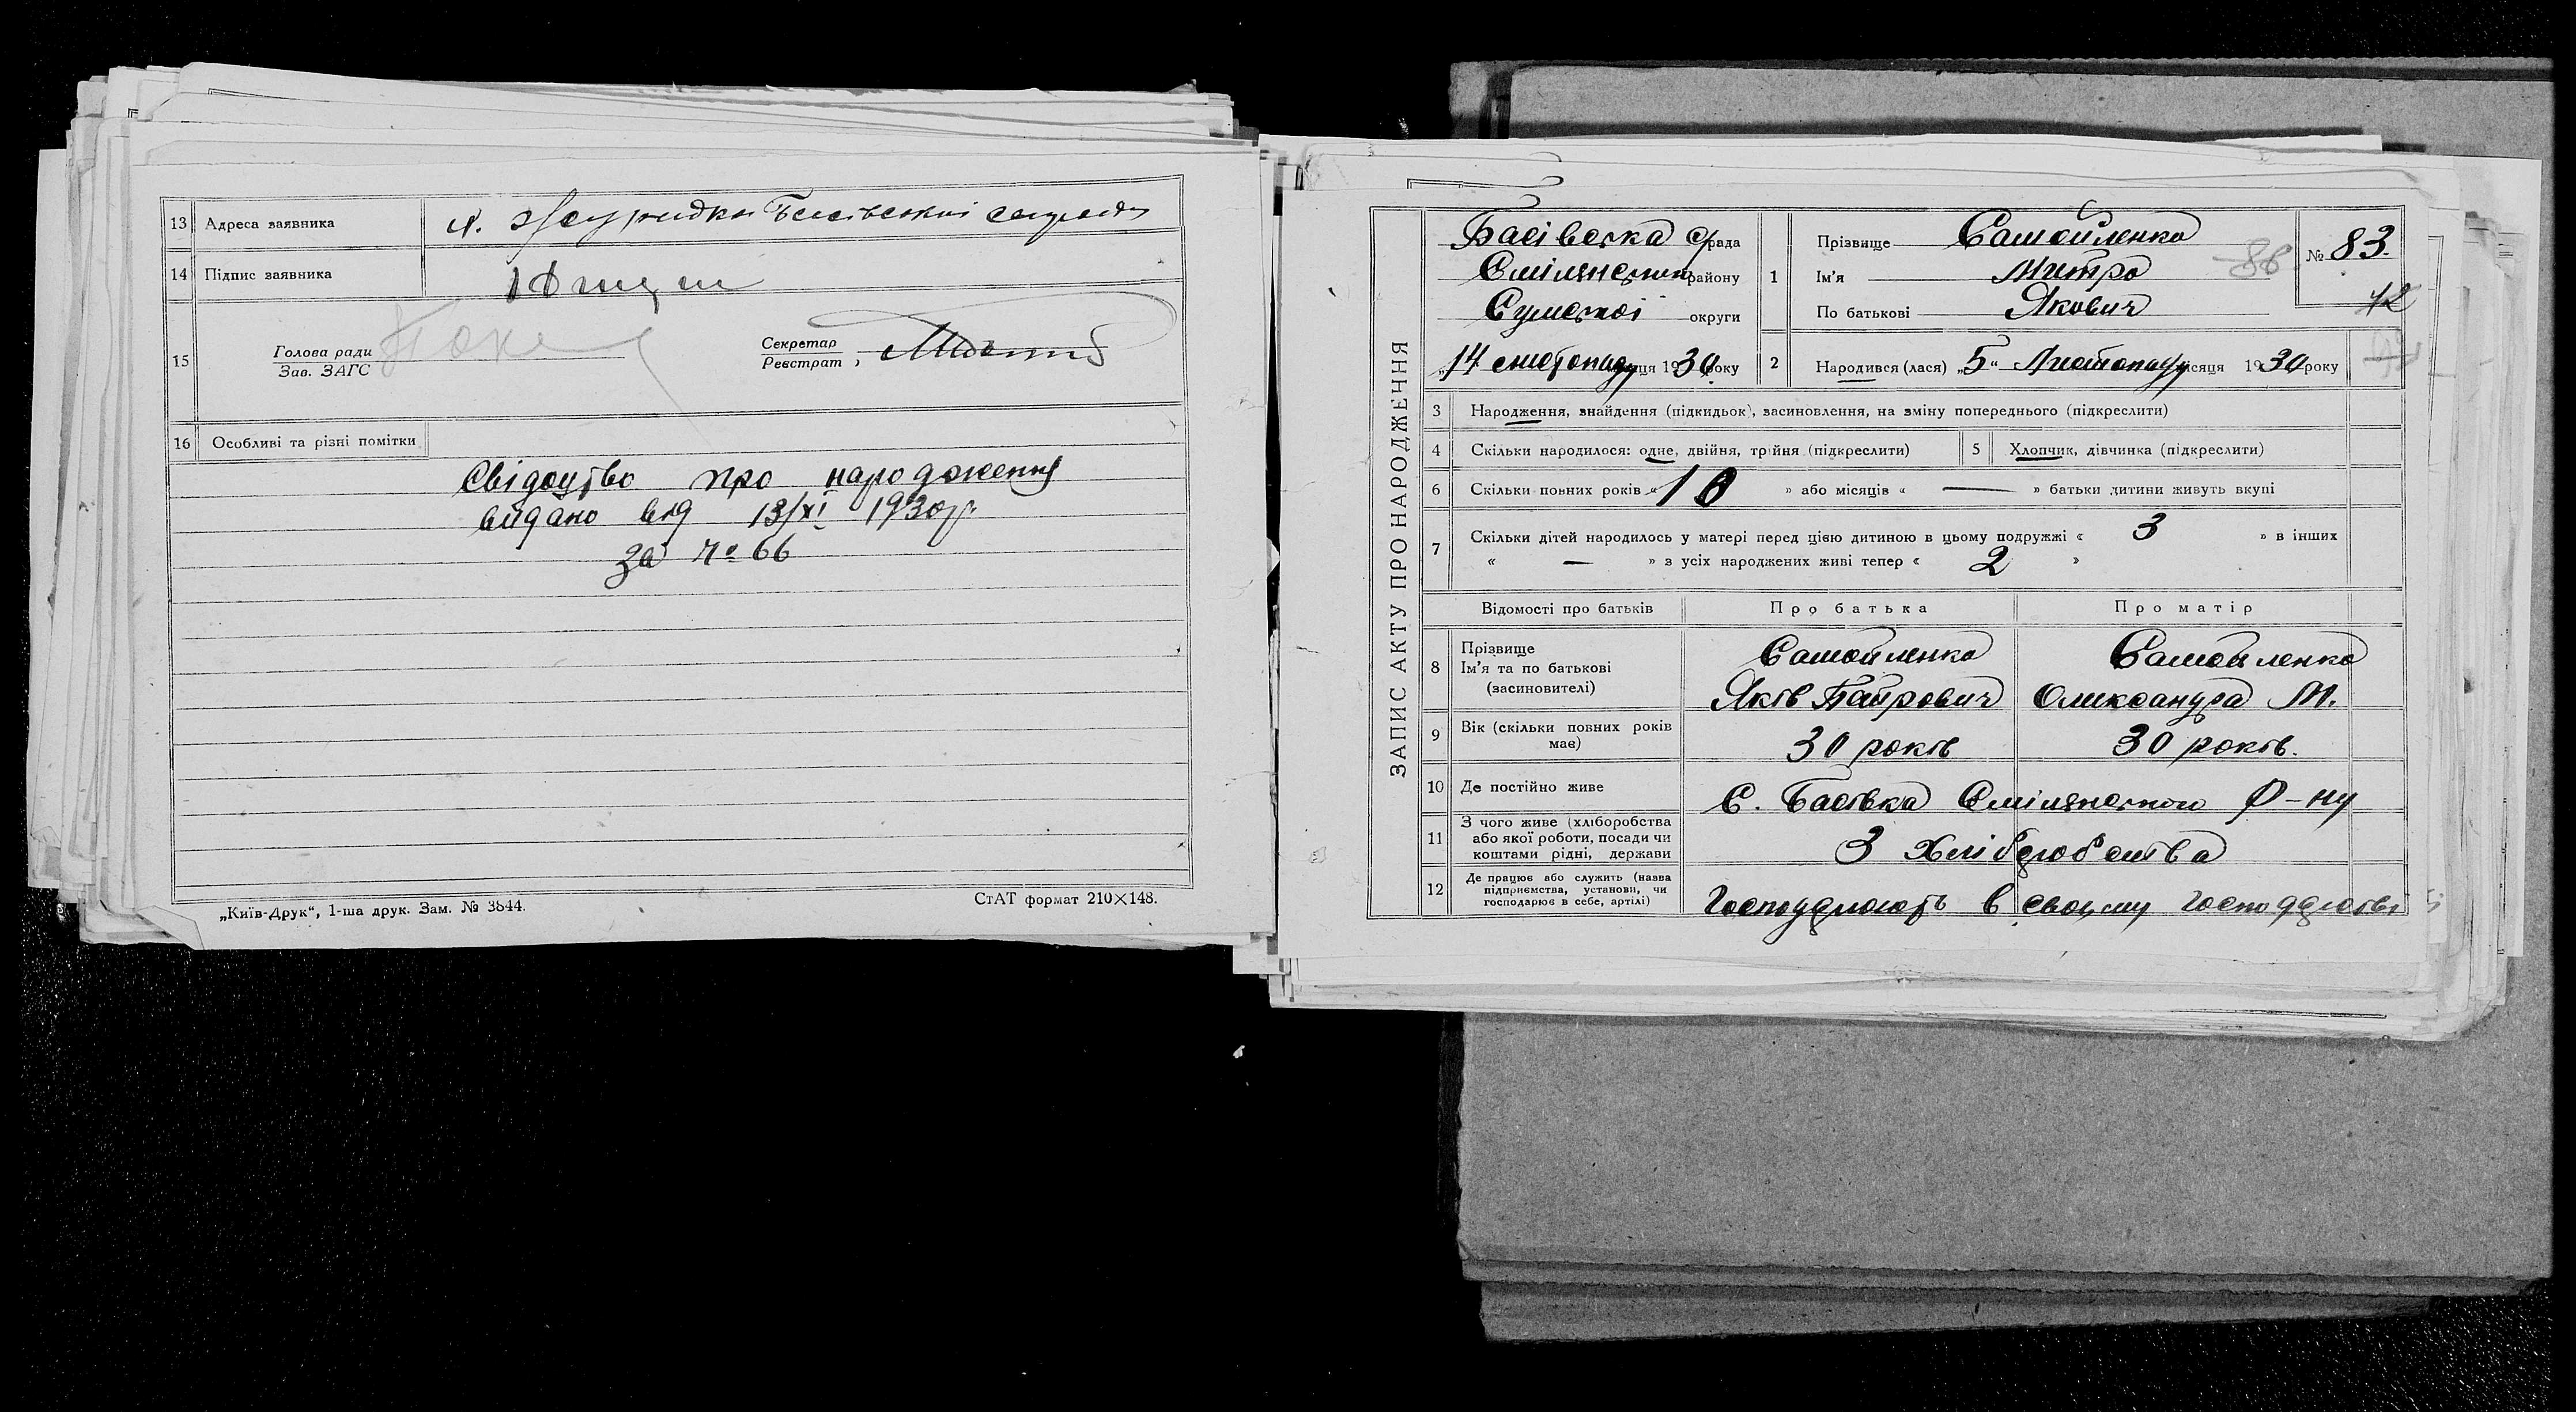 13 Адреса заявника х. Журидки Басівської сільради
14 Підпис заявника
15 Голова ради
Зав. ЗАГС
Секретар
Реєстрат ,
16 Особливі та різні помітки
Свідоцтво про народження
видано від 13/XI 1930 р.
за № 66
„Київ-Друк“, 1-ша друк. Зам. № 3844.
СтАТ формат 210×148.
ЗАПИС АКТУ ПРО НАРОДЖЕННЯ
Басівська с/рада
Смілянського району
Сумської округи
„14 листопаду місяця 1930 року
1 Прізвище Самойленко
Ім'я Митро
По батькові Якович
86
№ 83.
42
2 Народився (лася) „5“ Листопаду місяця 1930 року
3 Народження, знайдення (підкидьок), засиновлення, на зміну попереднього (підкреслити)
4 Скільки народилося: одне, двійня, трійня (підкреслити)
5 Хлопчик, дівчинка (підкреслити)
6 Скільки повних років « 10 » або місяців « — » батьки дитини живуть вкупі
7 Скільки дітей народилось у матері перед цією дитиною в цьому подружжі « 3 » в інших
« — » з усіх народжених живі тепер « 2 »
Відомості про батьків Про батька Про матір
8 Прізвище
Ім'я та по батькові
(засиновителі)
Самойленко Самойленко
Яків Петрович Олександра М.
9 Вік (скільки повних років
має)
30 років 30 років.
10 Де постійно живе С. Басівка Смілянського Р-ну
11 З чого живе (хліборобства
або якої роботи, посади чи
коштами рідні, держави
З хліборобства
12 Де працює або служить (назва
підприємства, установи, чи
господарює в себе, артілі)
Господарюють в своєму господарстві